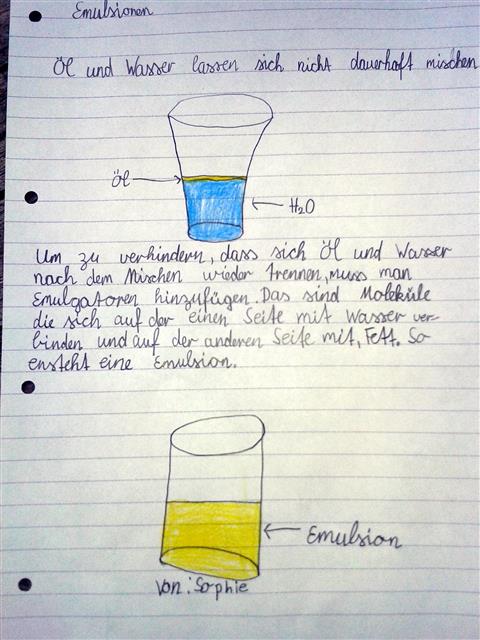 Emulsionen
Öl und Wasser lassen sich nicht dauerhaft mischen
Öl
H₂O
Um zu verhindern, dass sich Öl und Wasser
nach dem Mischen wieder trennen, muss man
Emulgatoren hinzufügen. Das sind Moleküle
die sich auf der einen Seite mit Wasser ver-
binden und auf der anderen Seite mit, Fett. So
ensteht eine Emulsion.
Emulsion
Von: Sophie